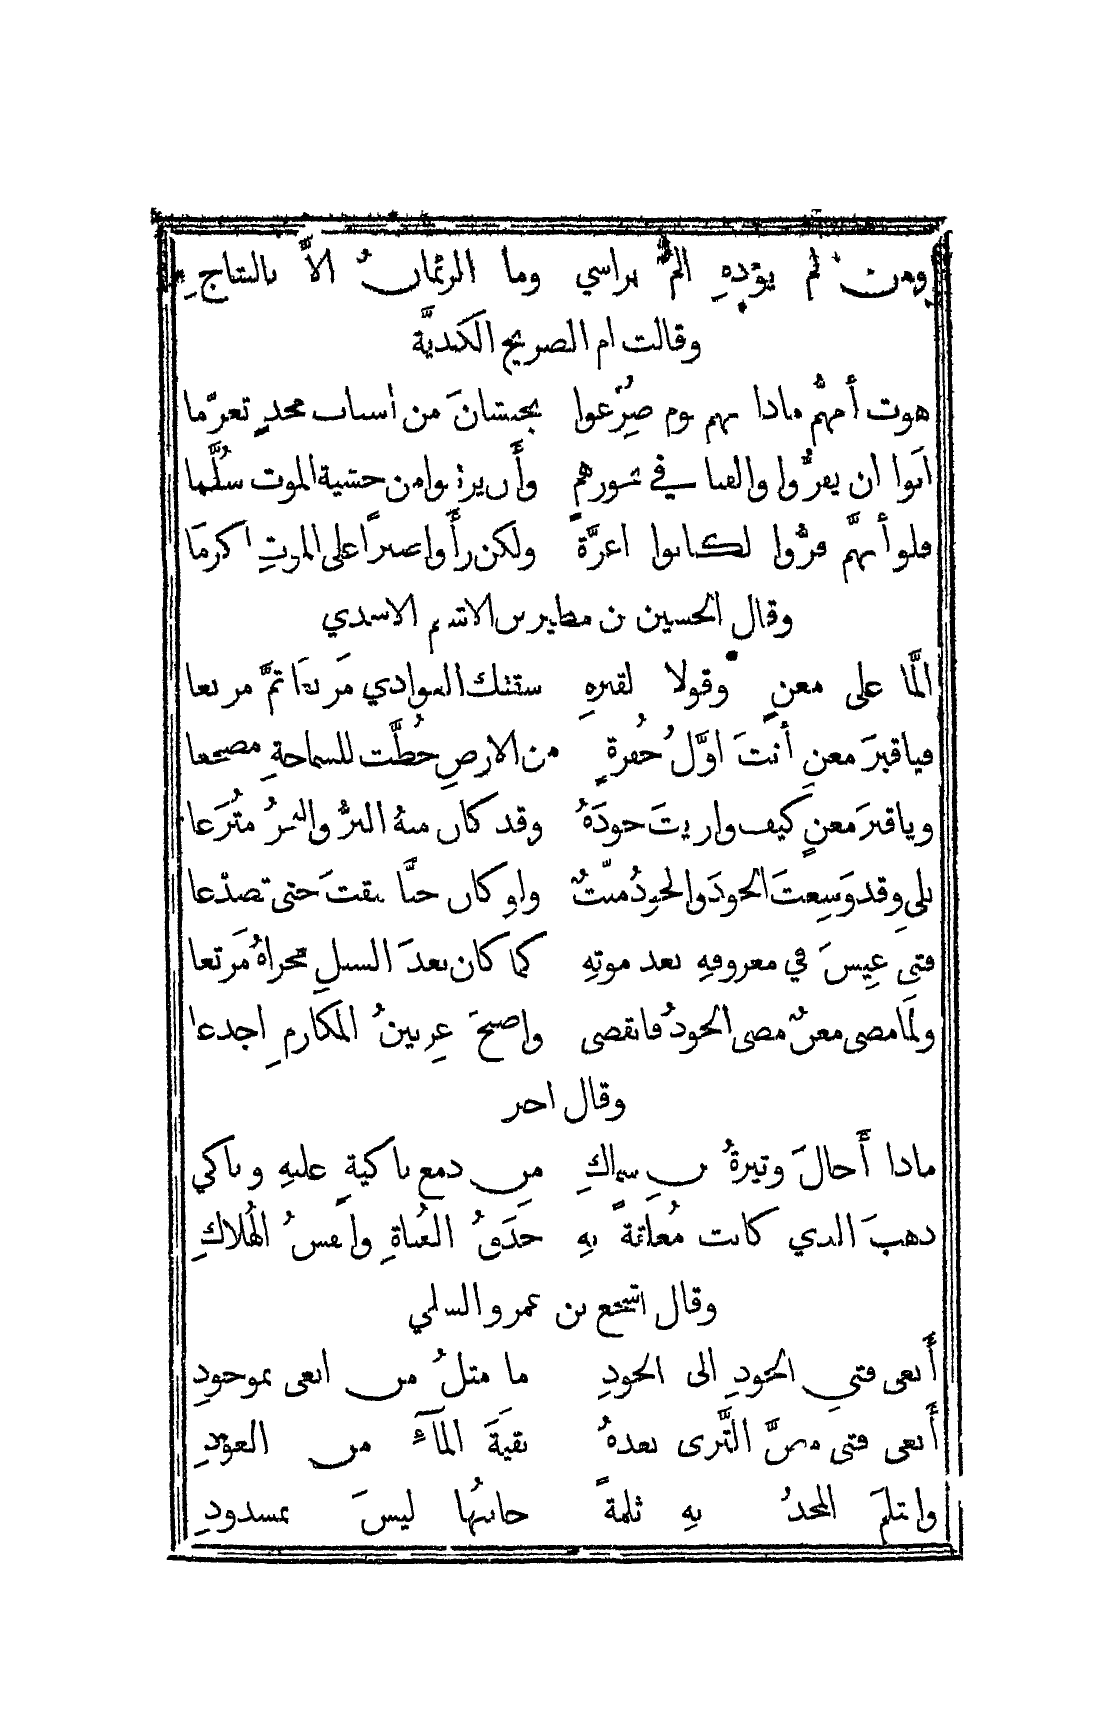 ومن لم يؤدهِ ألمٌ براسي وما الرئمانُ الاَّ بالنتاجِ
وقالت ام الصريح الكنديَّة
هوت أُمهُّم ماذا بهم يوم صُرّعوا بجيشانَ من اسباب مجدٍ تصرَّما
ابوا ان يفرُّوا والقنا في نحورهمِ وأَن يرتقوا من خشية الموت سُلَّما
فلو أَنهمَّ فرُّوا لكانوا اعزَّةً ولكن رأَوا صبراً على الموتِ اكرمَا
وقال الحسين بن مطير بن الاشيم الاسدي
المَّا على معنٍ وقولا لقبرهِ سقتك الغوادي مَربعَا ثمَّ مربعا
فياقبرَ معنٍ أَنتَ اوَّل حُفرةٍ من الارضِ حُطَّت للسماحةِ مضجعا
وياقبرَ معنٍ كيف واريتَ جودَهُ وقد كان منهُ البرُّ والبحرُ مُترَعا
بلى وقد وَسِعتَ الجودَ والجودُ ميّتٌ ولو كان حيًّا ضقتَ حتى تصدَّعا
فتى عِيسَ في معروفهِ بعد موتهِ كما كان بعدَ السيلِ مجراهُ مَرتعا
ولمَا مضى معنٌ مضى الجودُ فانقضى واصبحَ عِرنينُ المكارمِ اجدعا
وقال اخر
ماذا أَحالَ وتيرةُ بنِ سماكِ من دمع باكيةٍ عليهِ وباكي
ذهبَ الذي كانت مُعلقةً بهِ حَدَقُ العُناةِ وانفسُ الهُلاكِ
وقال اشجع بن عمرو السلمي
أَنعى فتي الجودِ الى الجودِ ما مثلُ من انعى بموجودِ
أَنعى فتى مصَّ الثَّرى بعدهُ بقيةَ المآءِ من العودِ
وانثلمَ المجدُ بهِ ثلمةً جانبُها ليسَ بمسدودِ